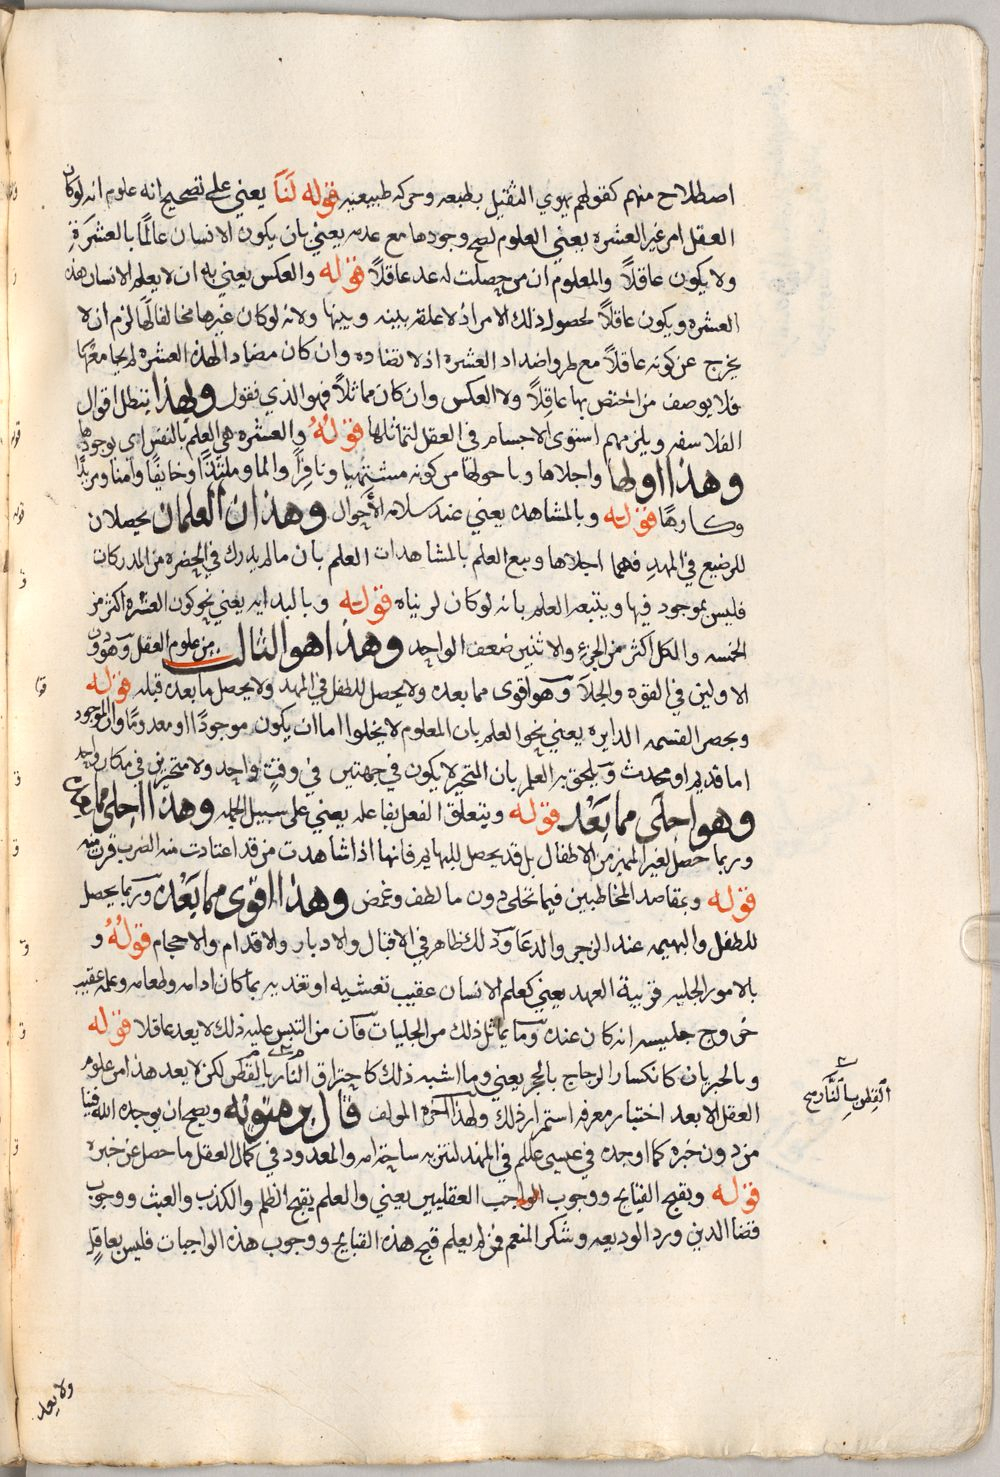 اصطلاح منهم كقولهم يهوي الثقيل بطبعه وحركه طبيعيه قوله لنا يعني على تصحيح انه علوم انه لو كان
العقل امر غير العشره يعني العلوم لصح وجودها مع عدمه يعني بان يكون الانسان عالمًا بالعشرة
ولا يكون عاقلاً والمعلوم ان من حصلت له عد عاقلاً قوله والعكس يعني به ان لا يعلم الانسان هذه
العشره ويكون عاقلاً لحصول ذلك الامر اذ لا علقه بينه وبينها ولانه لو كان غيرها مخالفا لها لزم ان لا
يخرج عن كونه عاقلاً مع طرو اضداد العشره اذ لا تضاده وان كان مضادا لهذه العشره لم يجامعها
فلا يوصف من اختص بها عاقلاً ولا العكس وان كان مماثلاً فهو الذي نقول ولهذا يبطل اقوال
الفلاسفه ويلزمهم استوى الاجسام في العقل لتماثلها قوله والعشره هي العلم بالنفس اى بوجودها
وهذا اولها واجلاها وباحوالها من كونه مشتهيا ونافرًا والما وملتذًا وخايفًا وامنا ومريدًا
وكارهًا قوله وبالمشاهده يعني عند سلامه الأحوال وهذان العلمان يحصلان
للرضيع في المهد فهما اجلاها ويتبع العلم بالمشاهدات العلم بان مالم يدرك في الحضره من المدركات
فليس بموجود فيها ويتبعه العلم بانه لو كان لرئيناه قوله وبالبدايه يعني نحو كون العشره اكثر من
الخمسه والكل اكثر من الجزء والاثنين ضعف الواحد وهذا هو الثالث من علوم العقل وهو دون
الاولين في القوه والجلا وهو اقوى مما بعده ولا يحصل للطفل في المهد ولا يحصل ما بعده قبله قوله
وبحصر القسمه الدايره يعني نحو العلم بان المعلوم لا يخلوا اما ان يكون موجودًا او معدومًا وان الموجود
اما قديم او محدث ويلحق به العلم بان المتحيز لا يكون في جهتين في وقتٍ واحد ولا متحيزين في مكان واحد
وهو اجلى مما بَعْد قوله ويتعلق الفعل بفاعله يعني على سبيل الجمله وهذا اجلى مما بعده
وربما حصل لغير المميز من الاطفال بل قد يحصل للبهايم فانها اذا شاهدت من قد اعتادت منه الضرب فرت منه
قوله وبمقاصد المخاطبين فيما تجلى دون ما لطف وغمض وهذا اقوى مما بَعْده وربما يحصل
للطفل والبهيمه عند الزجر والدعا وذلك ظاهر في الاقبال والادبار والاقدام والاحجام قوله و
بالامور الجليه قريبة العهد يعني كعلم الانسان عقيب تعشيه او تغديه بما كان ادامه وطعامه وعلمه عقيب
خروج جليسه انه كان عنده وما يماثل ذلك من الجليات فان من التبس عليه ذلك لا يعد عاقلا قوله
وبالخبريان كانكسار الزجاج بالحجر يعني وما اشبه ذلك كاحتراق النار بالقطن لكن لا يعد هذا من علوم
القطن بالنار صح
العقل الا بعد اختبار معرفه استمرار ذلك ولهذا اخره المولف قال بر متويه ويصح ان يوجده الله فينا
من دون خبره كما اوجده في عيسى عللم في المهد لتنزيه ساحة امه والمعدود في كمال العقل ما حصل عن خبره
قوله وبقبح القبايح ووجوب الواجب العقليين يعني والعلم بقبح الظلم والكذب والعبث ووجوب
قضا الدين ورد الوديعه وشكر المنعم فمن لم يعلم قبح هذه القبايح ووجوب هذه الواجبات فليس بعاقل
ولا يعد